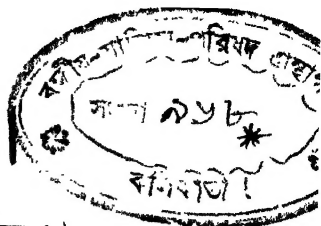 বঙ্গীয়-সাহিত্য-পরিষদ গ্রন্থা
সংখ্যা ৯৬৮
কলিকাতা।